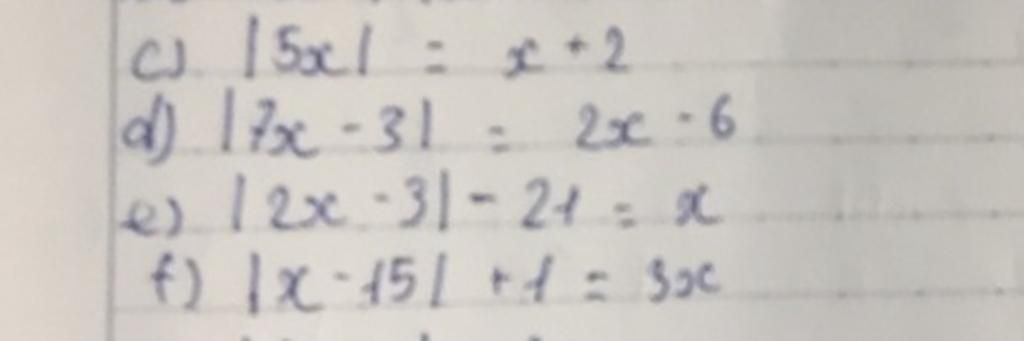 c) |5x| = x + 2
d) |7x - 3| = 2x - 6
e) |2x - 3| - 21 = x
f) |x - 15| + 1 = 3x